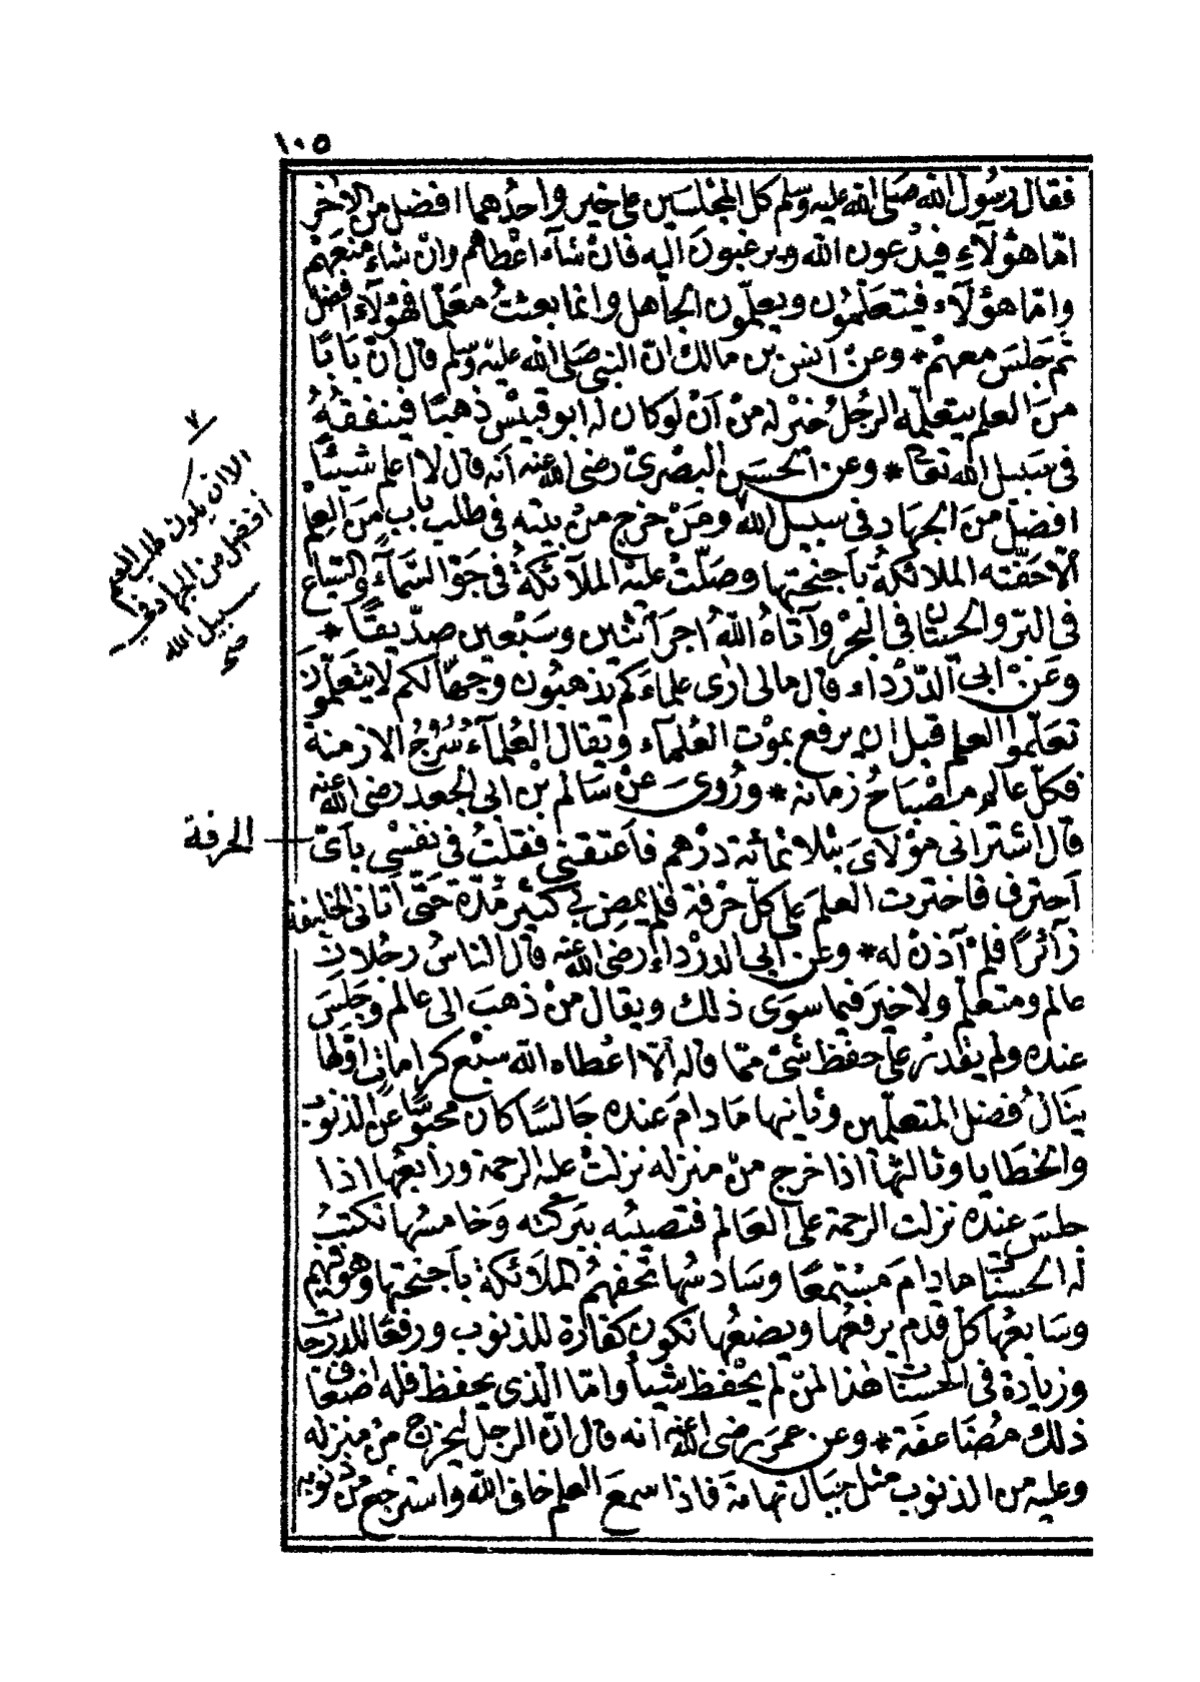 ١٠٥
فقال رسول الله صلى الله عليه وسلم كل المجلسين على خير واحدهما افضل من الآخر
امّا هؤلآءِ فيدعون الله ويرغبون اليه فان شآء اعطاهم وان شاء منعهم
وامّا هؤلآء فيتعلّمون ويعلّمون الجاهل وانما بعثت معلّما فهؤلآء افضل
ثم جلس معهم * وعن انس بن مالك انّ النبى صلى الله عليه وسلم قال ان بابًا
من العلم يتعلّمه الرجل خير له من ان لو كان له ابو قبيس ذهبًا فينفقه
فى سبيل الله تعالى * وعن الحسن البصرىّ رضى الله عنه انه قال لا اعلم شيئًا
افضل من الجهاد فى سبيل الله ٧ ومن خرج من بيته فى طلب باب من العلم
الّا حفّته الملائكة باجنحتها وصلّت عليه الملآئكة فى جوّ السّمآء والسّباع
فى البرّ والحيتان فى البحر وآتاه الله اجر اثنين وسبعين صدّيقًا *
وعن ابى الدّرداء قال مالى ارى علماءكم يذهبون وجهّالكم لا يتعلّمون
تعلّموا العلم قبل ان يرفع بموت العلماء ويقال العلمآء سرج الازمنة
فكلّ عالم مصباح زمانه * وروى عن سالم بن ابى الجعد رضى الله عنه
قال اشترانى مولاى بثلاثمائة درهم فاعتقنى فقلت فى نفسى باىّ
احترف فاخترت العلم على كلّ حرفة فلم يمض بى كبير مدّة حتّى اتانى الخليفة
زآئرًا فلم آذن له * وعن ابى الدرداء رضى الله عنه قال الناس رجلان
عالم ومتعلّم ولا خير فيما سوى ذلك ويقال من ذهب الى عالم وجلس
عنده ولم يقدر على حفظ شىء ممّا قاله الّا اعطاه الله سبع كرامات اوّلها
ينال فضل المتعلّمين وثانيها مادام عنده جالسًا كان محبوسًا عن الذنوب
والخطايا وثالثها اذا خرج من منزله نزلت عليه الرحمة ورابعها اذا
جلس عنده نزلت الرحمة على العالم فتصيبه ببركته وخامسها تكتب
له الحسنات مادام مستمعًا وسادسها تحفهم الملآئكة باجنحتها وهو فيهم
وسابعها كلّ قدم يرفعها ويضعها تكون كفارة للذنوب ورفعًا للدرجات
وزيادة فى الحسنات هذا لمن لم يحفظ شيئا وامّا الّذى يحفظ فله اضعاف
ذلك مضاعفة * وعن عمر رضى الله عنه انه قال انّ الرجل ليخرج من منزله
وعليه من الذنوب مثل جبال تهامة فاذا سمع العلم خاف الله واسترجع من ذنوبه
٧
الا ان يكون طلب العلم
أفضل من الجهاد فى
سبيل الله
صح
الحرفة